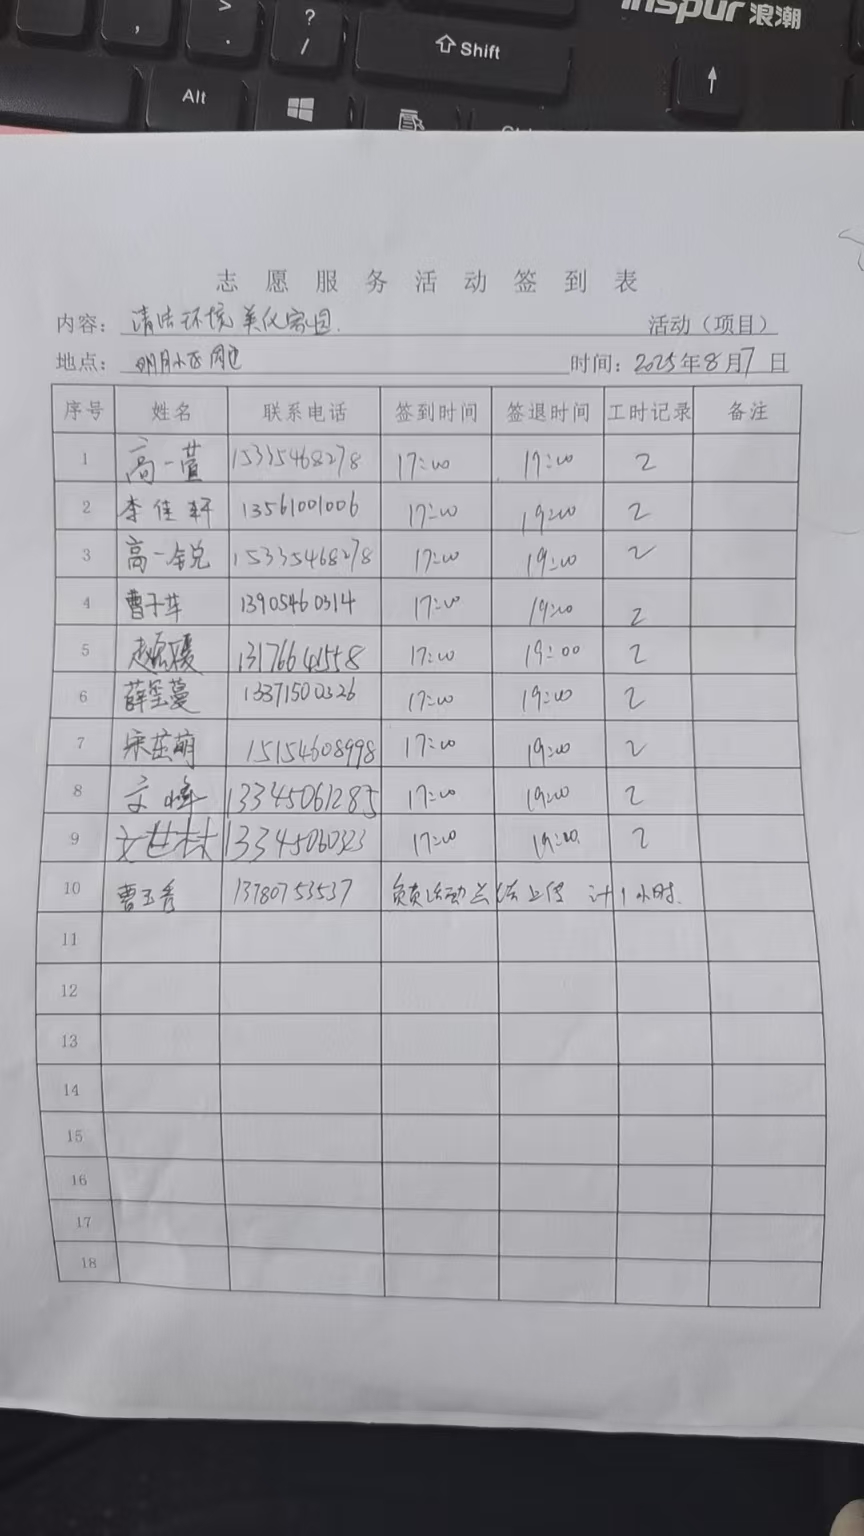 >
.
,
?
/
Shift
inspur 浪潮
Alt
↑
志愿服务活动签到表
内容: 清洁环境 美化家园 活动(项目)
地点: 明月小区周边 时间: 2025年8月7日
序号 姓名 联系电话 签到时间 签退时间 工时记录 备注
1 高一萱 15335468278 17:00 17:00 2
2 李佳轩 13561001006 17:00 19:00 2
3 高一锐 15335468278 17:00 19:00 2
4 曹子苹 13905460314 17:00 19:00 2
5 13176641558 17:00 19:00 2
6 薛玺蔓 13371500326 17:00 19:00 2
7 宋茁萌 15154608998 17:00 19:00 2
8 文峰 13345061285 17:00 19:00 2
9 文世林 13345060323 17:00 19:00 2
10 曹玉秀 13780753537 负责活动总结上传 计1小时.
11
12
13
14
15
16
17
18